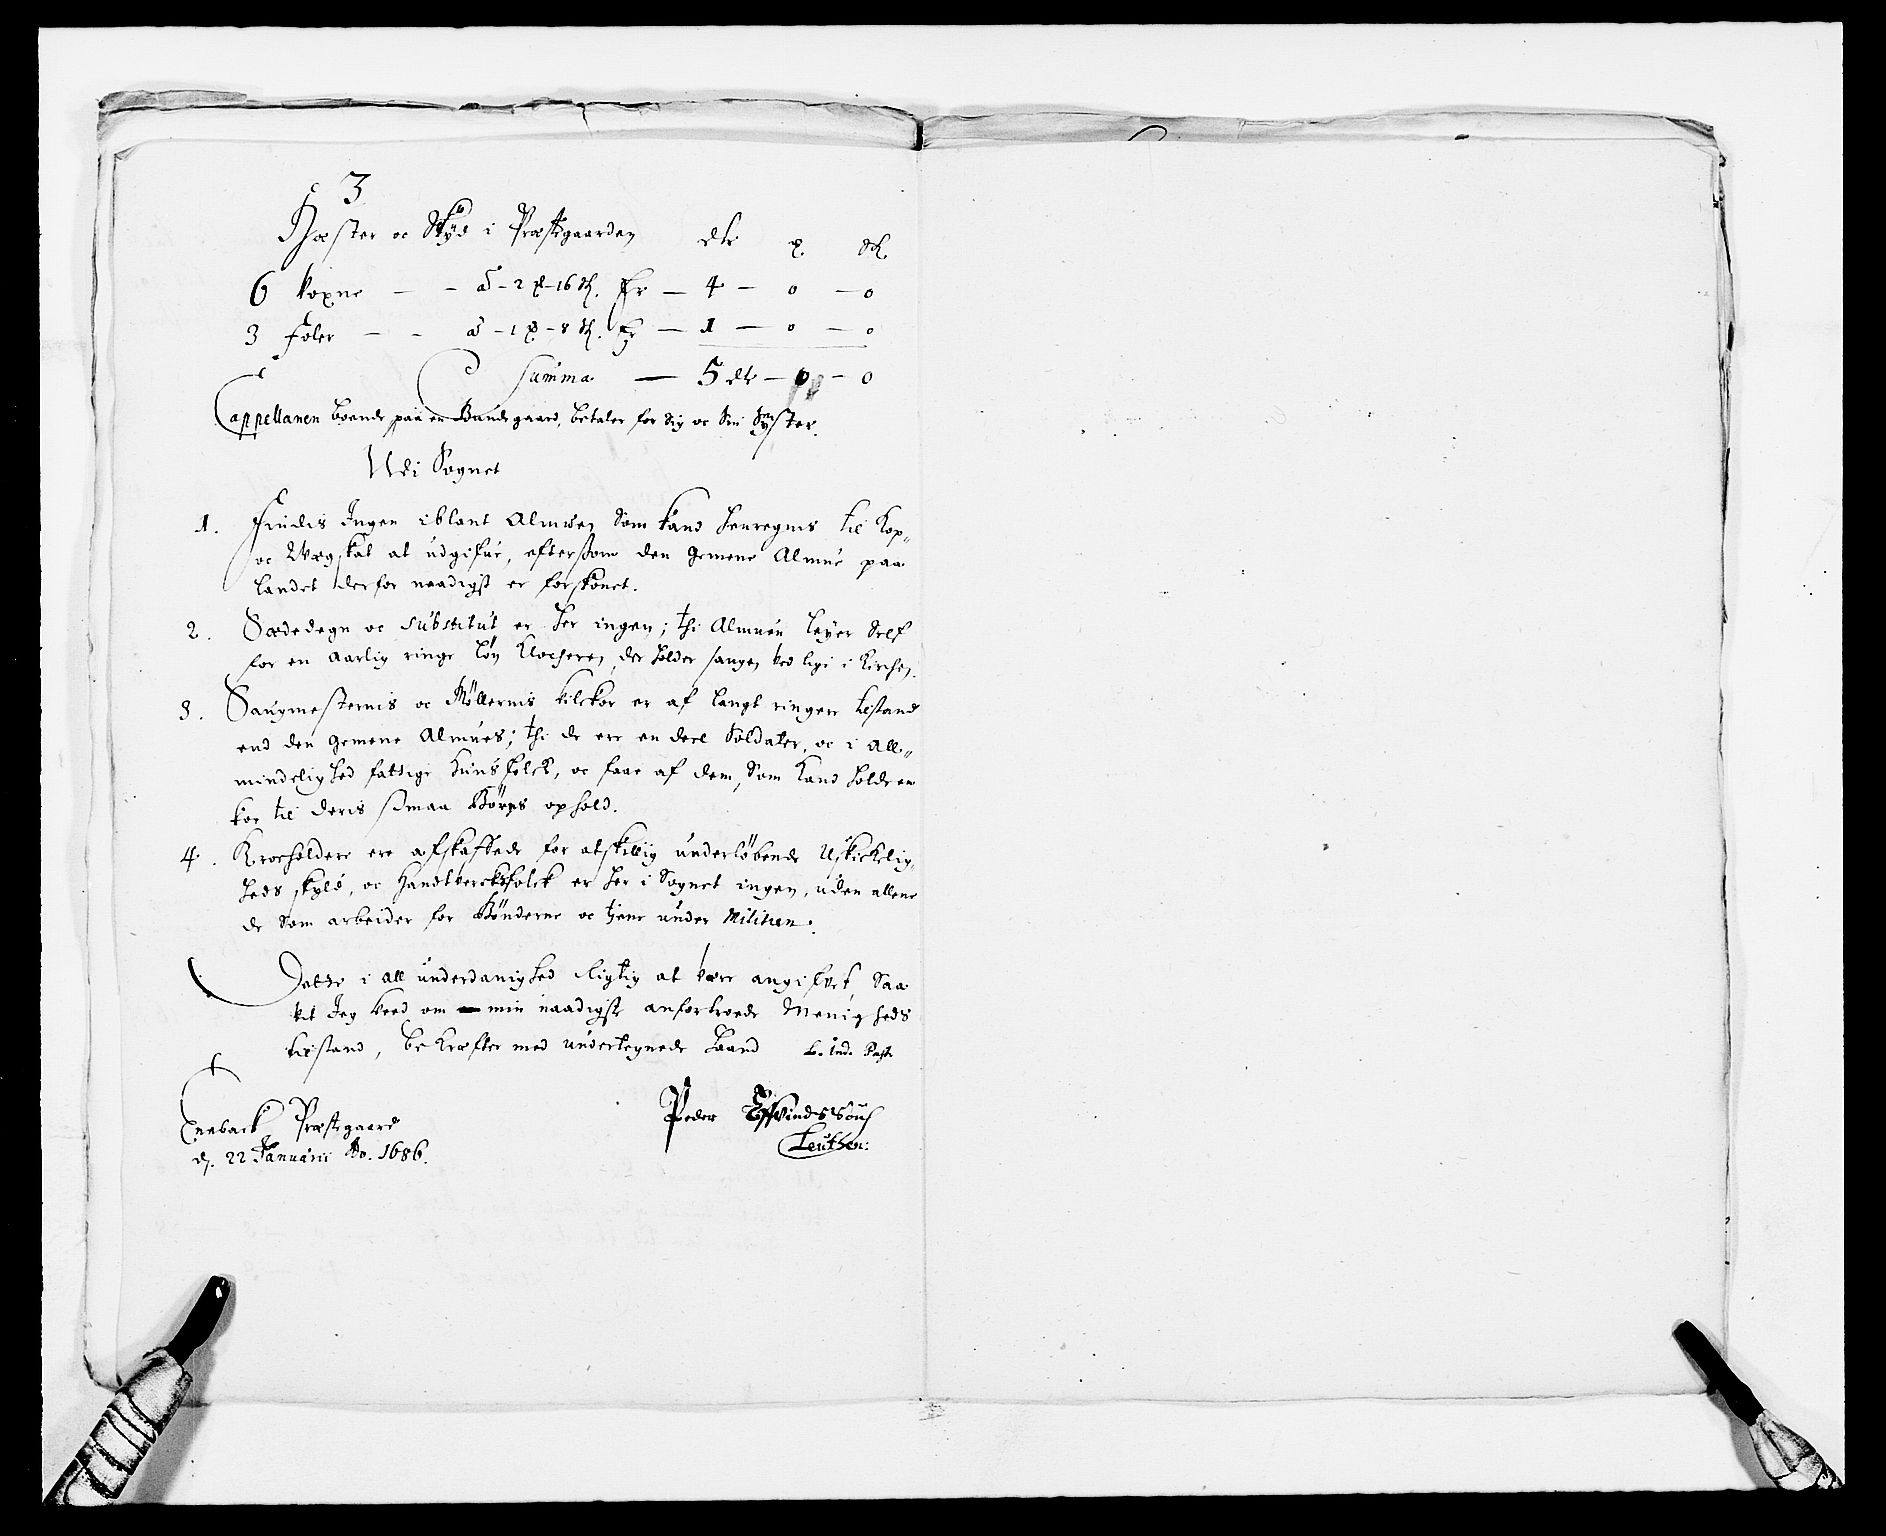 3
Hæster oc Skyd i Præstegaarden dlr ꝶ sk
6 Voxne — - à - 2 ꝶ - 16 sk. Er — 4 — 0 — 0
3 Foler — - à - 1 ꝶ - 8 sk. Er — 1 — 0 — 0
Summa — 5 dlr — 0 — 0
Cappellanen boende paa en Bundegaard, betaler for Sig oc Sin Syster.
Udi Sognet
1. Findis Ingen iblant Almuen Som kand henregnis til Kop-
oc Qvægskat at udgifue, eftersom den gemene Almue paa
Landet derfor naadigst er forskonet.
2. Sædedegn oc substitut er her ingen; thi Almuen leyer Self
for en aarlig ringe løn Klockeren, der holder sangen ved ligi i Kirchen.
3. Saugmesternis oc Møllernis vilckor er af langt ringere tilstand
end den gemene Almues; thi de ere en deel Soldater, oc i all-
mindelighed fattige Huusfolck, oc faae af dem, Som kand holde en
koe til deris smaa Børns ophold.
4. Kroeholdere ere afskaffede for atskillig underløbende Uskickelig-
heds skyld, oc Handtvercksfolck er her i Sognet ingen, uden allene
de Som arbeider for Bønderne oc tiene under Militien.
Dette i all underdanighed Rigtig at være angifvet Saa
vit Jeg veed om min naadigst anfortroede Menigheds
tilstand, bekræfter med undertegnede haand
Peder EyvindsSøn
Leuthen:
Eneback Præstegaard
d. 22 Januarii Ao. 1686.